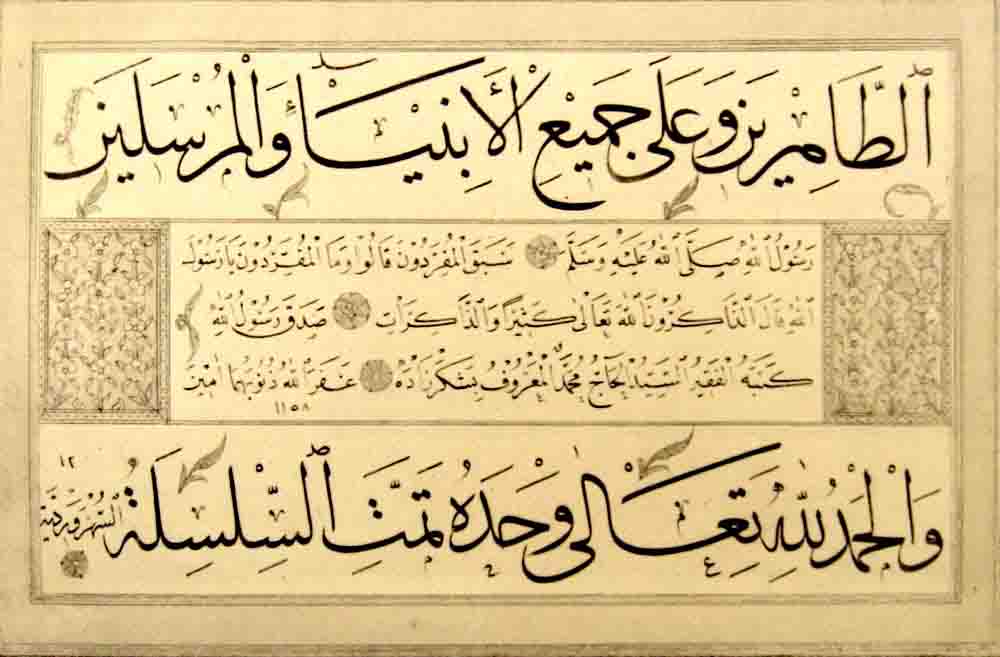 اَلطَّاهِرِينَ وَعَلَى جَمِيْعِ الْأَنْبِيَاءِ وَالْمُرْسَلِينَ
رَسُوْلُ اللهِ صَلَّى اللهُ عَلَيْهِ وَسَلَّمَ سَبَقَ الْمُفَرِّدُوْنَ قَالُوا وَمَا الْمُفَرِّدُوْنَ يَا رَسُوْلَ
اللهِ قَالَ الذَّاكِرُوْنَ اللهَ تَعَالَى كَثِيْرًا وَالذَّاكِرَاتِ صَدَقَ رَسُوْلُ اللهِ
كَتَبَهُ الْفَقِيْرُ السَّيِّدُ الْحَاجُّ مُحَمَّدُ الْمَعْرُوْفُ بِشَكَرْزَادَه غَفَرَ اللهُ ذُنُوْبَهُمَا آمِيْنَ
١١٥٨
وَالْحَمْدُ لِلّٰهِ تَعَالَى وَحْدَهُ تَمَّتِ السِّلْسِلَةُ السُّهْرَوَرْدِيَّة
١٢